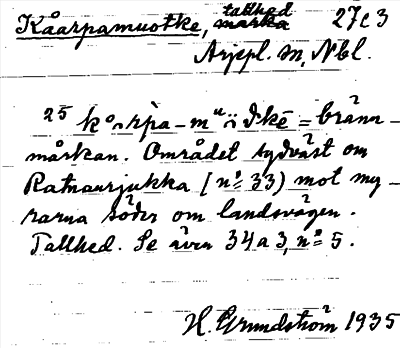 Kåarpamuotke, tallhed marka 27c3
Arjepl. M, Nbl.
25 = bränn-
märkan. Området sydväst om
Ratnaurjukka (nº 33) mot my-
rarna söder om landsvägen.
Tallhed. Se även 34a3, nº 5.
H. Grundström 1935